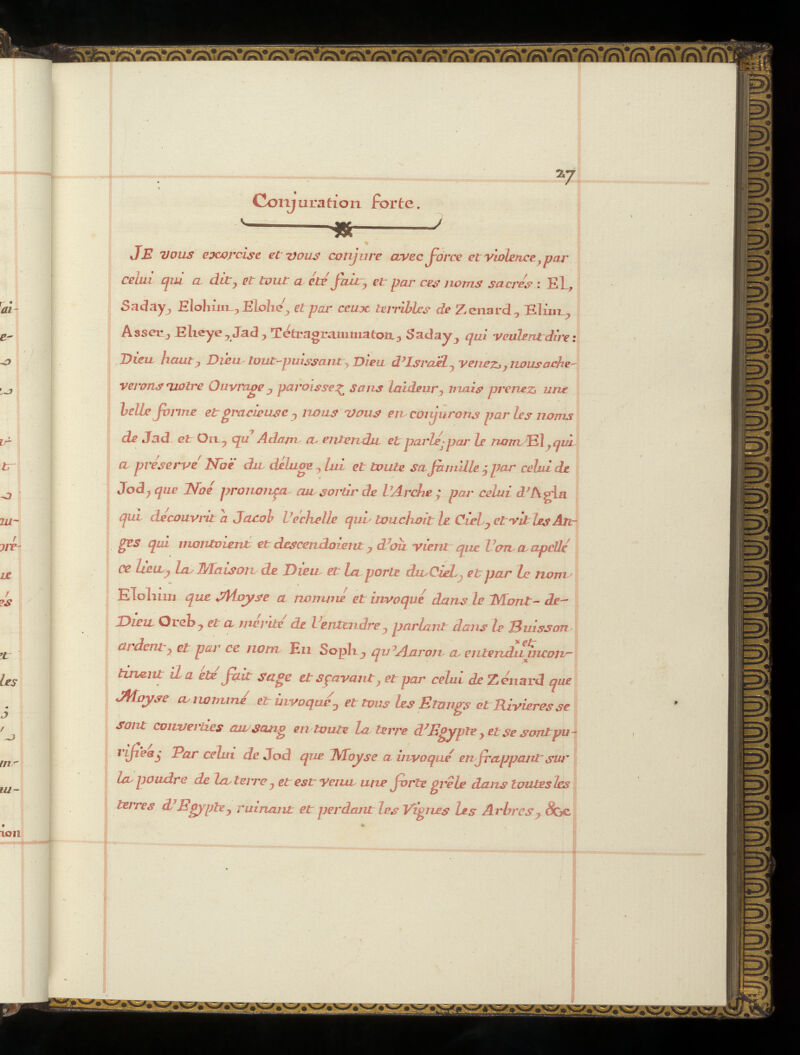 27
Conjuration forte.
JE vous exorcise et vous conjure avec force et violence, par
celui qui a dit, et tout a été fait, et par ces noms sacrés : El,
Saday, Elohim, Elohé, et par ceux terribles de Zenard, Elim,
Asser, Eheye, Jad, Tétragrammaton, Saday, qui veulent dire :
Dieu haut, Dieu tout-puissant, Dieu d'Israël, venez, nous ache-
verons votre Ouvrage, paroissez sans laideur, mais prenez une
belle forme et gracieuse, nous vous en conjurons par les noms
de Jad et On, qu' Adam a entendu et parlé; par le nom El, qui
a préservé Noë du déluge, lui et toute sa famille ; par celui de
Jod, que Noé prononça au sortir de l'Arche ; par celui d'Agla
qui découvrit à Jacob l'échelle qui touchoit le Ciel, et vit les An-
ges qui montoient et descendoient, d'où vient que l'on a apellé
ce lieu, la Maison de Dieu et la porte du Ciel, et par le nom
Elohim que Moyse a nommé et invoqué dans le Mont-de-
Dieu Oreb, et a mérité de l'entendre, parlant dans le Buisson
ardent, et par ce nom En Soph, qu'Aaron a entendu, et incon-
tinent il a été fait sage et sçavant, et par celui de Zénard que
Moyse a nommé et invoqué, et tous les Etangs et Rivieres se
sont converties au sang en toute la terre d'Egypte, et se sont pu-
rifiées ; Par celui de Jod que Moyse a invoqué en frappant sur
la poudre de la terre, et est venu une forte grêle dans toutes les
terres d'Egypte, ruinant et perdant les Vignes les Arbres, &c